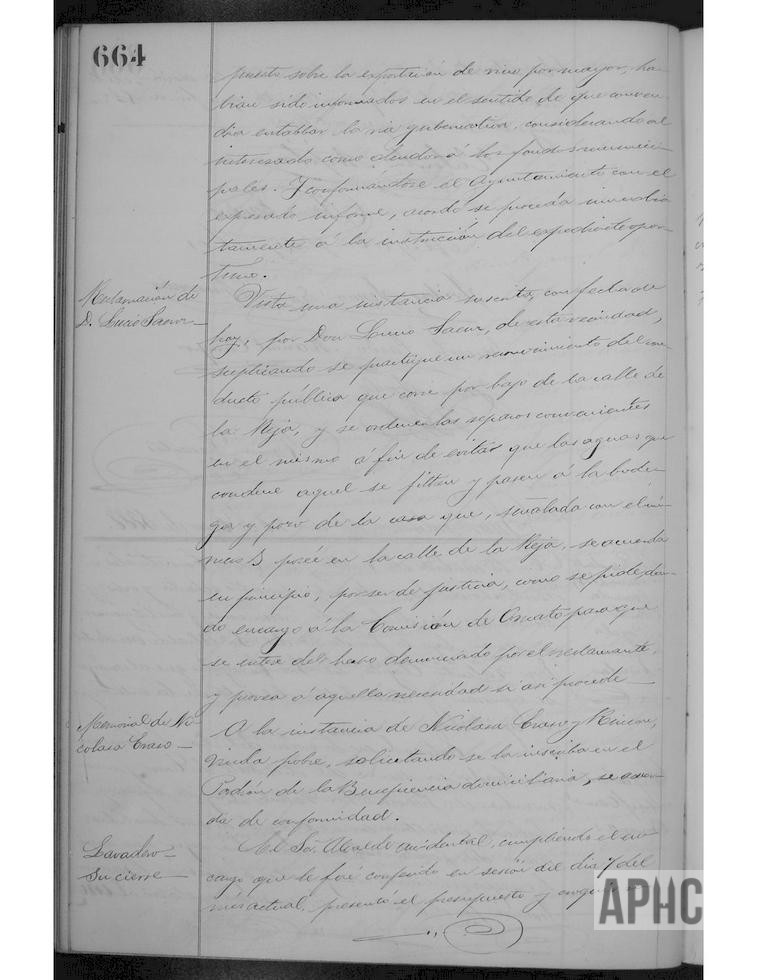 664
puesto sobre la exportación de vino por mayor, ha-
bían sido informados en el sentido de que conven-
día entablar la vía gubernativa, considerando al
interesado como deudor á los fondos munici-
pales. Y conformándose el Ayuntamiento con el
expresado informe, acordó se proceda inmedia-
tamente á la instrucción del expediente opor-
tuno.
Reclamación de
D. Lucio Saenz
Vista una instancia suscrita, con fecha de
hoy, por Don Lucio Saenz, de esta vecindad,
suplicando se practique un reconocimiento del con-
ducto público que corre por bajo de la calle de
la Reja, y se ordenen los reparos convenientes
en el mismo á fin de evitar que las aguas que
conduce aquel se filtren y pasen á la bode-
ga y pozo de la casa que, señalada con el nú-
mero posée en la calle de la Reja, se acuerda
en principio, por ser de justicia, como se pide, dan-
do encargo á la Comisión de Ornato para que
se entere del hecho denunciado por el reclamante,
y provea á aquella necesidad si así procede
Memorial de Ni-
colasa Eraso
A la instancia de Nicolasa Eraso y Rincon,
viuda pobre, solicitando se la inscriba en el
Padrón de la Beneficencia domiciliaria, se acuer-
da de conformidad.
Lavadero
Su cierre
El Sr. Alcalde accidental, cumpliendo el en-
cargo que le fué conferido en sesión del día 7 del
mes actual, presentó el presupuesto y croquis
APHC